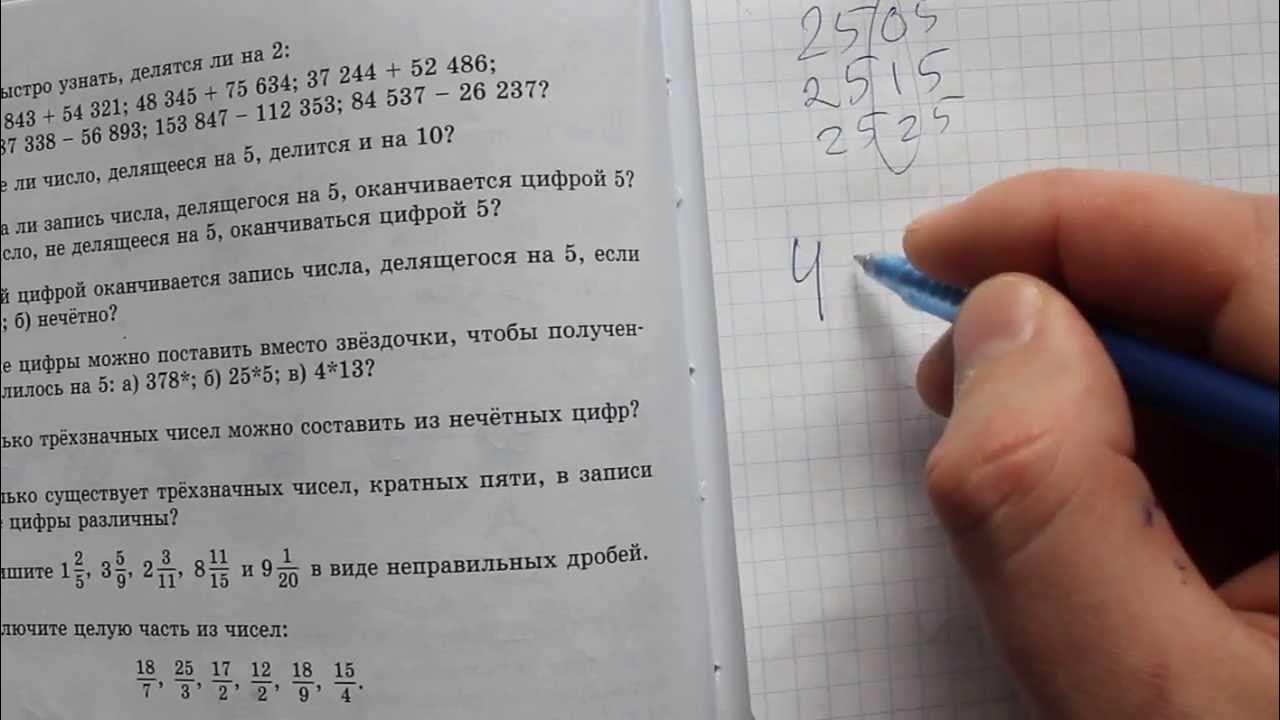 ыстро узнать, делятся ли на 2:
843 + 54 321; 48 345 + 75 634; 37 244 + 52 486;
87 338 – 56 893; 153 847 – 112 353; 84 537 – 26 237?
е ли число, делящееся на 5, делится и на 10?
а ли запись числа, делящегося на 5, оканчивается цифрой 5?
сло, не делящееся на 5, оканчиваться цифрой 5?
й цифрой оканчивается запись числа, делящегося на 5, если
; б) нечётно?
е цифры можно поставить вместо звёздочки, чтобы получен-
лилось на 5: а) 378*; б) 25*5; в) 4*13?
ько трёхзначных чисел можно составить из нечётных цифр?
лько существует трёхзначных чисел, кратных пяти, в записи
е цифры различны?
ишите 1 2/5, 3 5/9, 2 3/11, 8 11/15 и 9 1/20 в виде неправильных дробей.
лючите целую часть из чисел:
18/7, 25/3, 17/2, 12/2, 18/9, 15/4.
2505
2515
2525
4